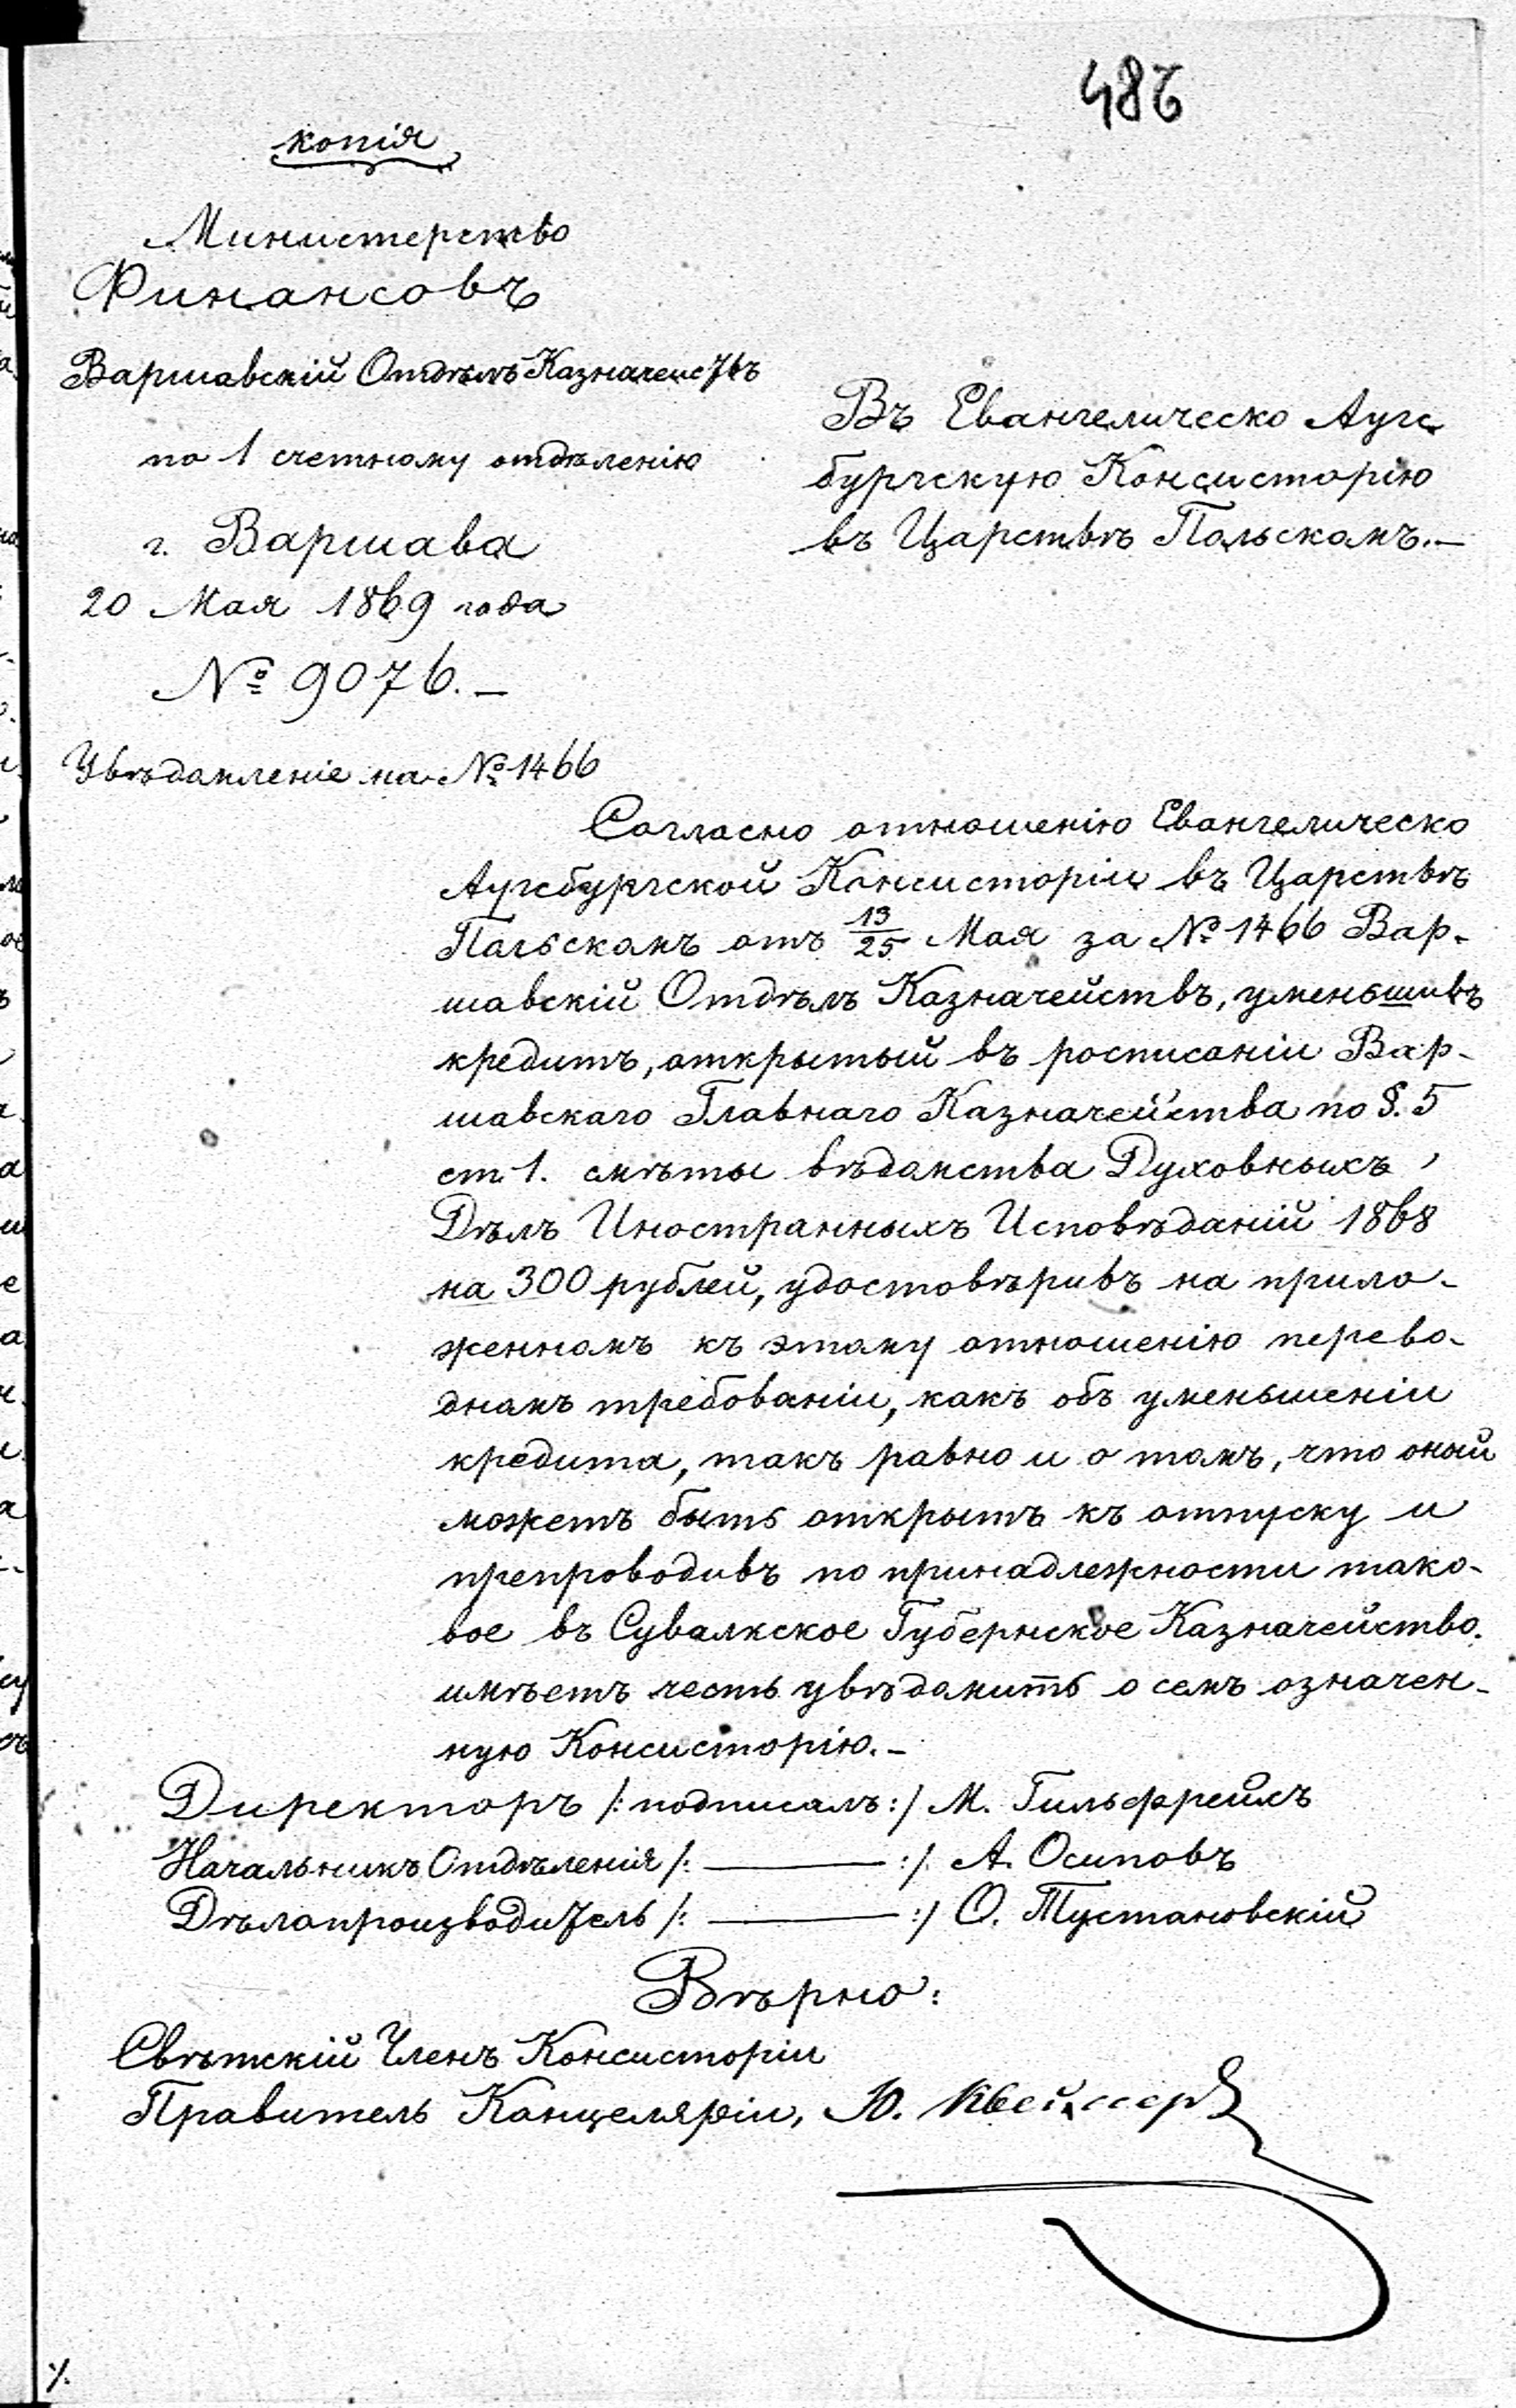 486
копія
Министерство
Финансовъ
Варшавскій Отдѣлъ Казначействъ
по 1 счетному отдѣленію
г. Варшава
20 Мая 1869 года
№ 9076.–
Въ Евангелическо Аугс
бургскую Консисторію
въ Царствѣ Польскомъ.–
Увѣдомленіе на № 1466
Согласно отношенію Евангелическо
Аугсбургской Консисторіи въ Царствѣ
Польскомъ отъ 13/25 Мая за № 1466 Вар-
шавскій Отдѣлъ Казначействъ, уменьшивъ
кредитъ, открытый въ росписаніи Вар-
шавскаго Главнаго Казначейства по §. 5
ст. 1. смѣты вѣдомства Духовныхъ
Дѣлъ Иностранныхъ Исповѣданій 1868
на 300 рублей, удостовѣривъ на прило-
женномъ къ этому отношенію перево-
дномъ требованіи, какъ объ уменьшеніи
кредита, такъ равно и о томъ, что оный
можетъ быть открытъ къ отпуску и
препроводивъ по принадлежности тако-
вое въ Сувалкское Губернское Казначейство.
имѣетъ честь увѣдомить о семъ означен-
ную Консисторію.–
Директоръ /: подписалъ :/ М. Гильфрейхъ
Начальникъ Отдѣленія /: ——— :/ А. Осиповъ
Дѣлопроизводитель /: ——— :/ О. Тустановскій
Вѣрно:
Свѣтскій Членъ Консисторіи
Правитель Канцеляріи, Ю.
./.